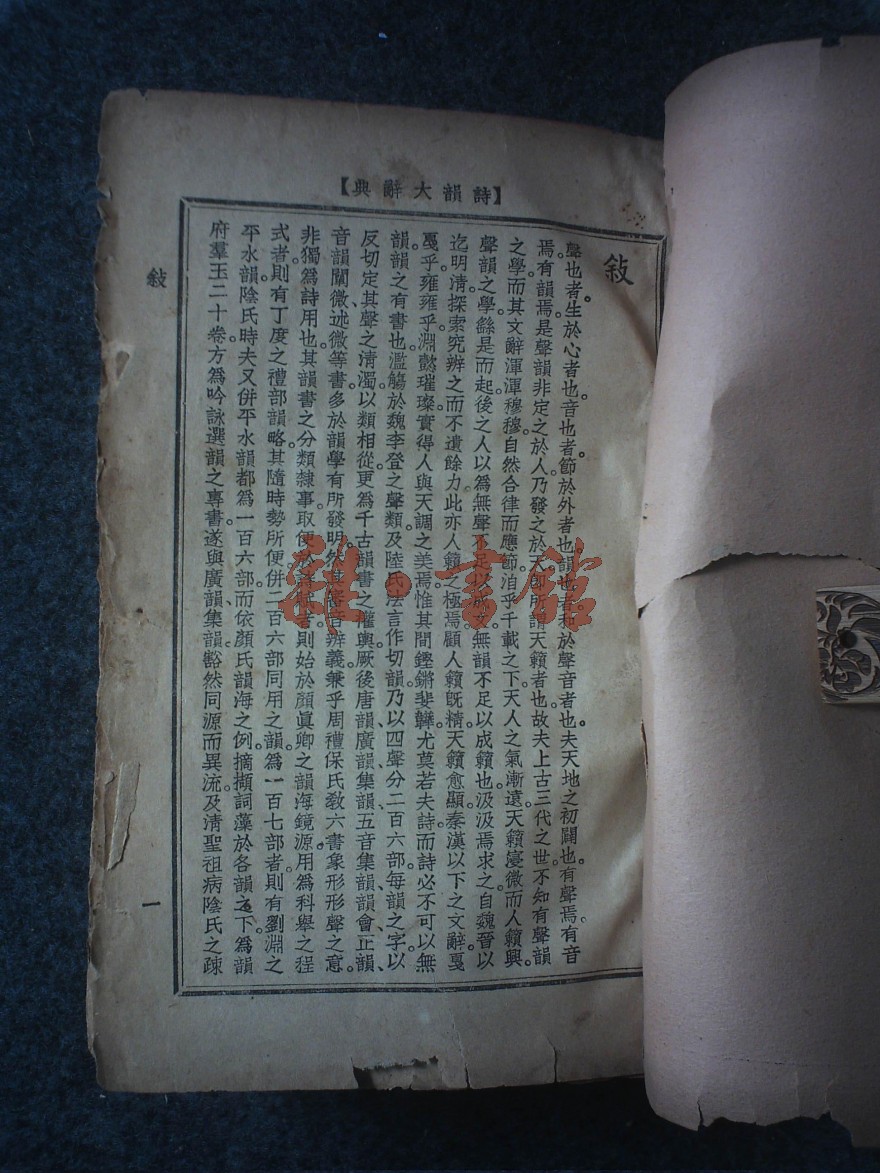 【詩韻大辭典】
敍
聲也者。生於心者也。音也者。節於外者也。韻也者。和於聲音者也。夫天地之初闢也。有聲焉。有音
焉。有韻焉。是聲韻非定之於人。乃發之於天。卽所謂天籟者也。故夫上古三代之世。不知有聲韻
之學。而其文辭渾渾穆穆。自然合律而應節。洎乎千載之下。天人之氣漸遠。天籟寖微而人籟興。
聲韻之學。繇是而起。後之人以爲無聲不足以成文。無韻不足以成籟也。汲汲焉求之。自魏晉以
迄明清。探索究辨之而不遺餘力。此亦人籟之極焉。顧人籟旣精。天籟愈顯。秦漢以下之文辭。戛
戛乎雍雍乎。淵懿璀璨。實得人與天調之美焉。惟其間鏗鏘斐韡。尤莫若夫詩。而詩必不可以無
韻。韻之有書也。濫觴於魏李登之聲類。及陸氏法言作切韻。乃以四聲分二百六部。每韻之字。以
反切定其聲之清濁。以類相從。更爲千古韻書之灌輿。厥後唐韻、廣韻、集韻、五音集韻、韻會、正韻、
音韻闡微、述微等書。多於韻學有所發明。然其審音辨義。兼乎周禮保氏敎六書象形形聲之意。
非獨爲詩用也。其韻書之分類隸事。取便於詩賦者。則始於顏眞卿之韻海鏡源。用爲科舉之程
式者。則有丁度之禮部韻略。其隨時勢所便。併二百六部同用之韻。爲一百七部者。則有劉淵之
平水韻。陰氏時夫又併平水韻都爲一百六部。而依顏氏韻海之例。摘擷詞藻於各韻之下。爲韻
府羣玉二十卷。方爲吟詠選韻之專書。遂與廣韻集韻。豁然同源而異流。及清聖祖病陰氏之疎
敍
一
雅·書館